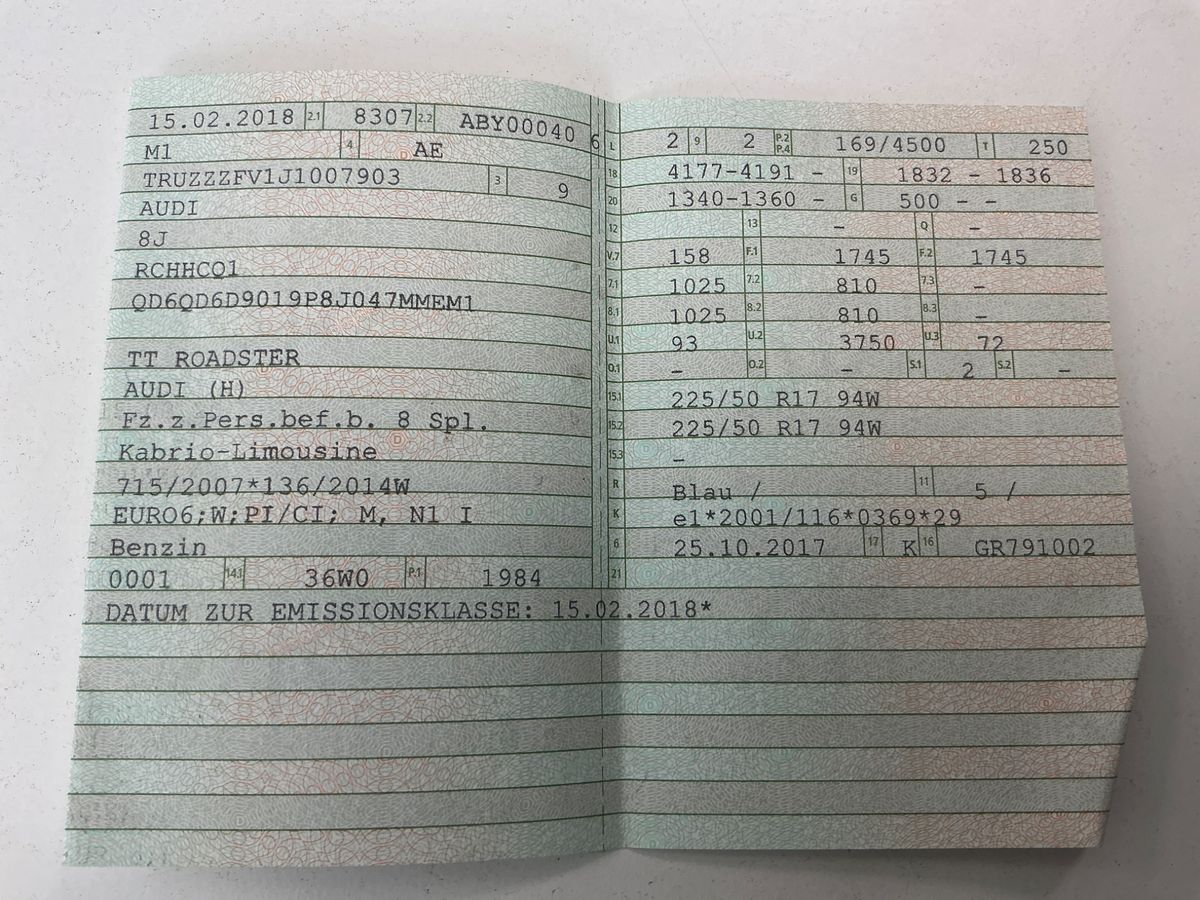 15.02.2018 2.1 8307 2.2 ABY00040 6
M1 4 AE
TRUZZZFV1J1007903 3 9
AUDI
8J
RCHHCQ1
QD6QD6D9019P8J047MMEM1
TT ROADSTER
AUDI (H)
Fz.z.Pers.bef.b. 8 Spl.
Kabrio-Limousine
715/2007*136/2014W
EURO6;W;PI/CI; M, N1 I
Benzin
0001 14.1 36W0 P.1 1984
DATUM ZUR EMISSIONSKLASSE: 15.02.2018*
L 2 9 2 P.2 P.4 169/4500 T 250
18 4177-4191 - 19 1832 - 1836
20 1340-1360 - G 500 - -
12 13 - Q -
V.7 158 F.1 1745 F.2 1745
7.1 1025 7.2 810 7.3 -
8.1 1025 8.2 810 8.3 -
U.1 93 U.2 3750 U.3 72
O.1 - O.2 - S.1 2 S.2 -
15.1 225/50 R17 94W
15.2 225/50 R17 94W
15.3 -
R Blau / 11 5 /
K e1*2001/116*0369*29
6 25.10.2017 17 K 16 GR791002
21